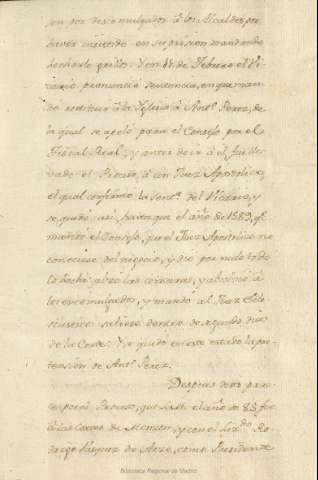 son por descomulgados à los Alcaldes por
haver insistido en su prision mandando
hecharle grillos. Y en 11 de Febrero el Vi-
cario pronunció sentencia, en que man-
dó restituir à la Iglesia à Antº. Perez, de
la qual se apeló para el Consejo por el
Fiscal Real, y antes de ir à él, fue lle-
vado el Proceso à un Juez Apostolico,
el qual confirmó la Sentª. del Vicario, y
se quedó asi, hasta que el año de 1589, qe.
mandó el Consejo, que el Juez Apostolico no
conociese del negocio, y dió por nulo todo
lo hecho, alzó las censuras, y absolvió à
los excomulgados, y mandó al Juez Ecle-
siastico saliese dentro de segundo dia
de la Corte. Y se quedó en este estado la pre-
tension de Antº. Perez.
Despues de
Proceso, que el año de 85 fue
à las Cortes de Monzon, y con el Lizdo. Ro-
drigo Vazquez de Arze, como Presidente
Biblioteca Regional de Madrid